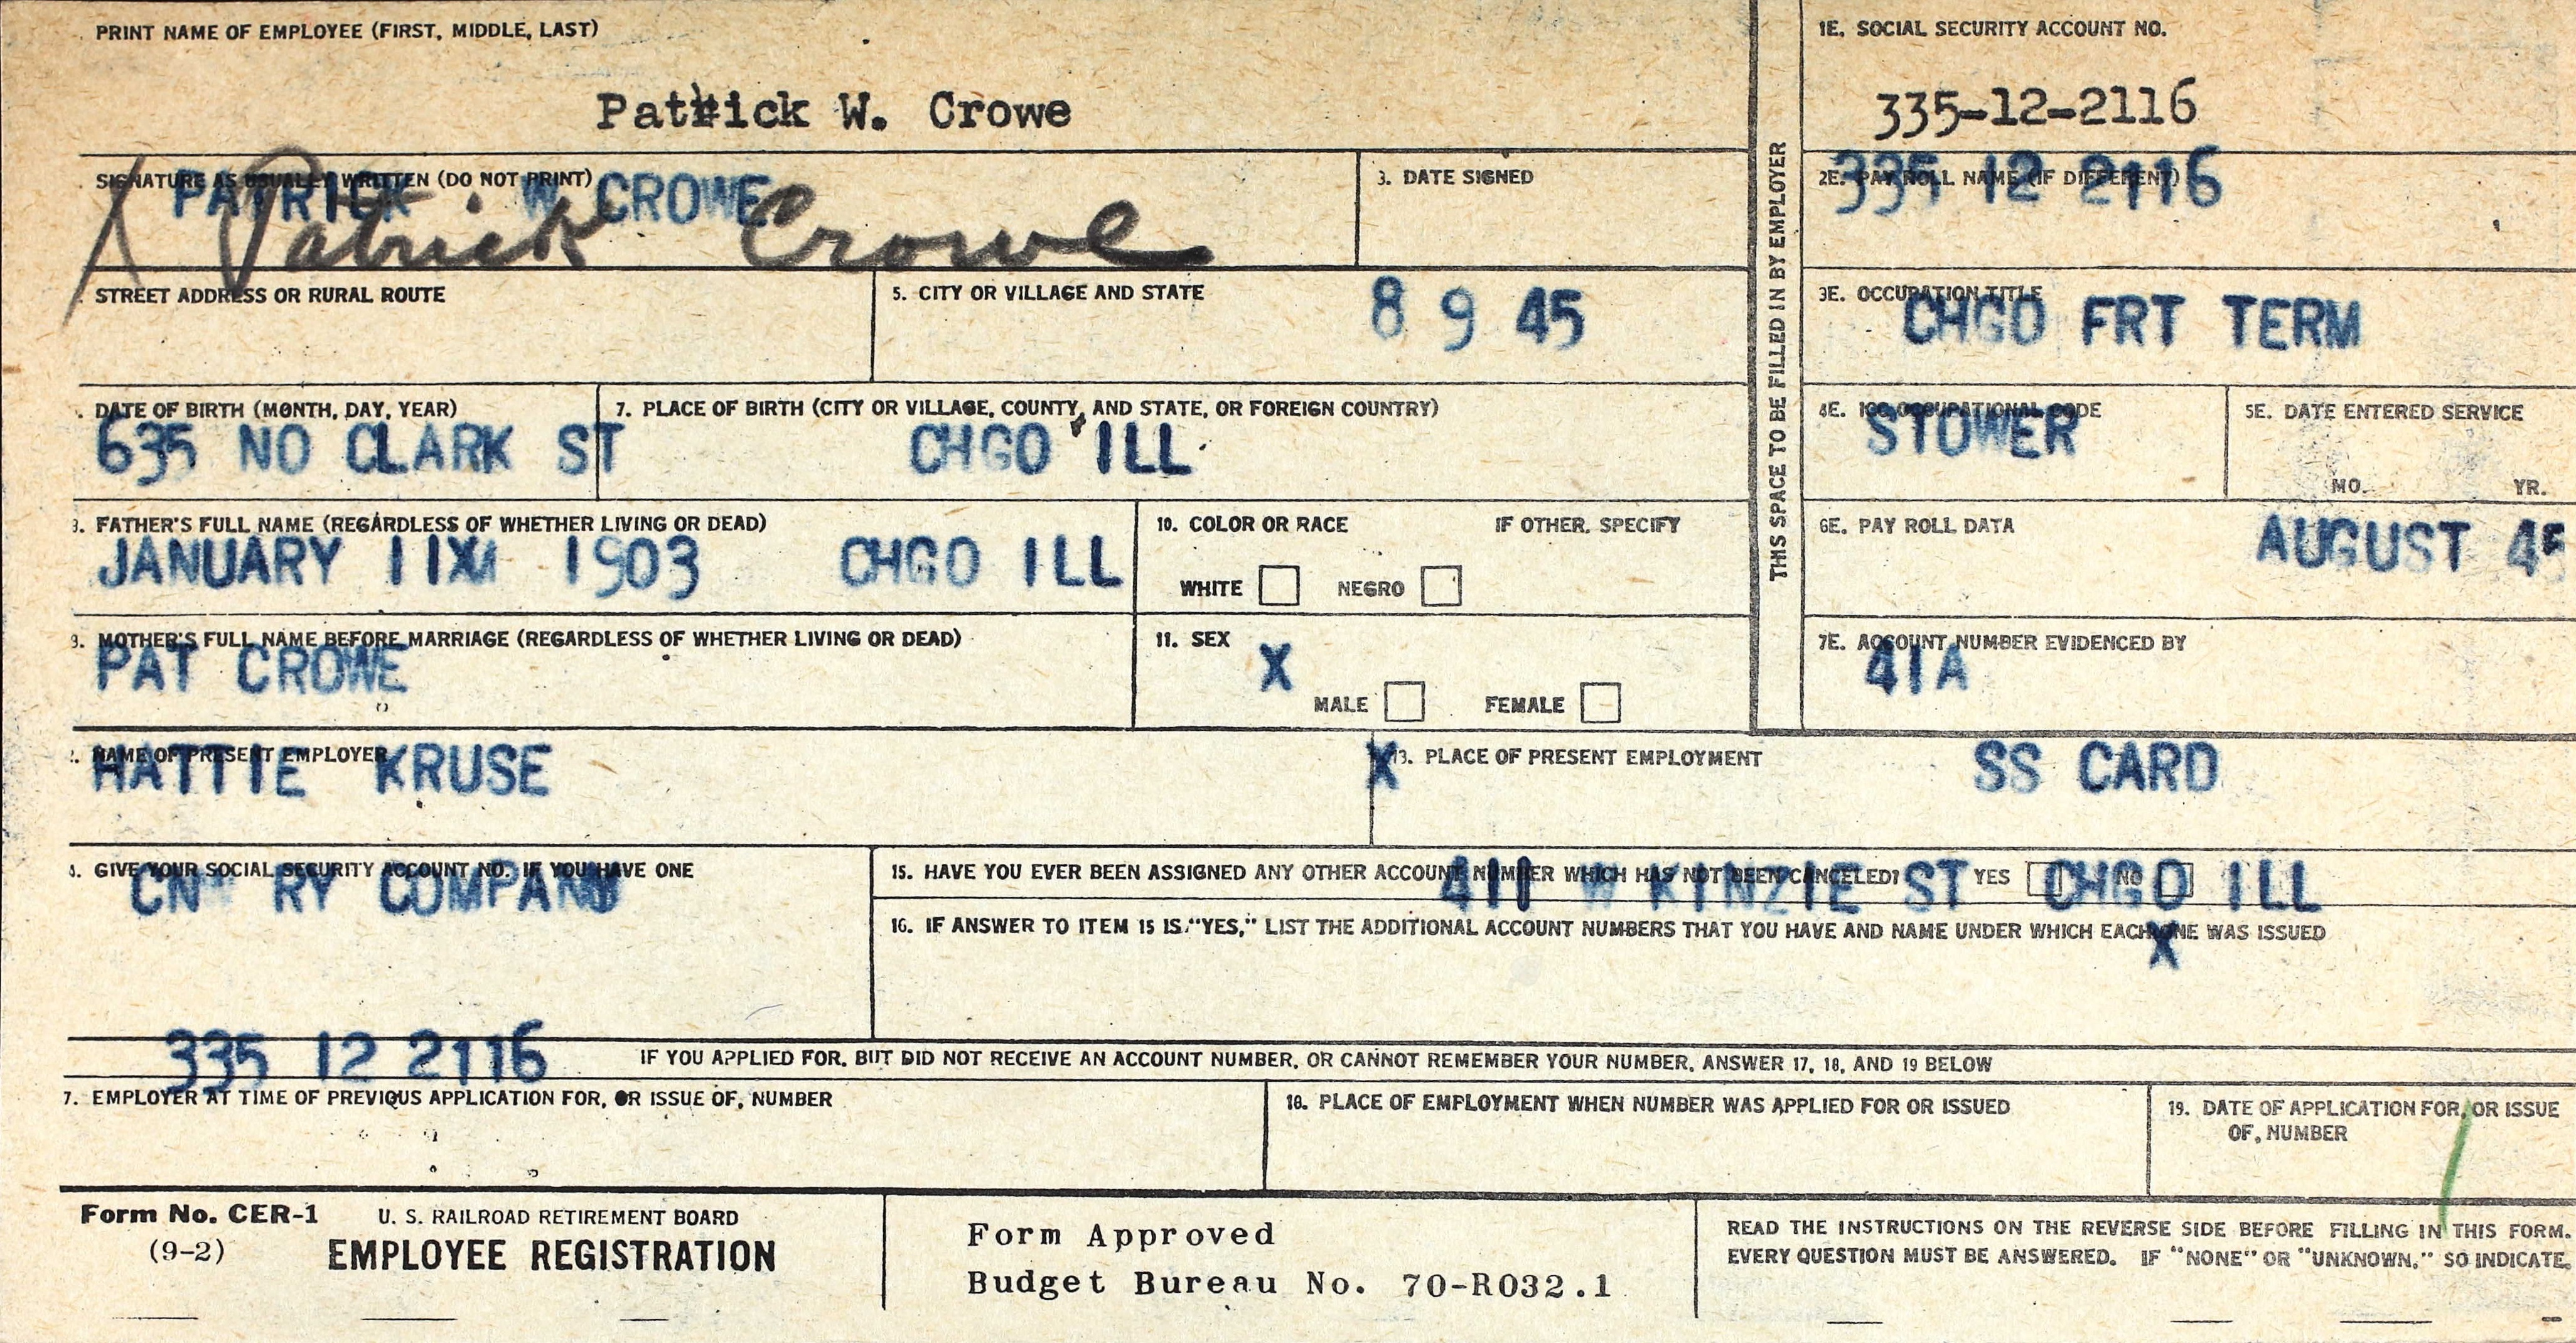 PRINT NAME OF EMPLOYEE (FIRST, MIDDLE, LAST)
Patrick W. Crowe
1E. SOCIAL SECURITY ACCOUNT NO.
335-12-2116
SIGNATURE AS USUALLY WRITTEN (DO NOT PRINT)
PATRICK W CROWE
Patrick Crowe
3. DATE SIGNED
2E. PAY ROLL NAME (IF DIFFERENT)
335 12 2116
THIS SPACE TO BE FILLED IN BY EMPLOYER
STREET ADDRESS OR RURAL ROUTE
5. CITY OR VILLAGE AND STATE
8 9 45
3E. OCCUPATION TITLE
CHGO FRT TERM
DATE OF BIRTH (MONTH, DAY, YEAR)
635 NO CLARK ST
7. PLACE OF BIRTH (CITY OR VILLAGE, COUNTY, AND STATE, OR FOREIGN COUNTRY)
CHGO ILL
4E. ICC OCCUPATIONAL CODE
STOWER
5E. DATE ENTERED SERVICE
MO. YR.
FATHER'S FULL NAME (REGARDLESS OF WHETHER LIVING OR DEAD)
JANUARY 11 1903 CHGO ILL
10. COLOR OR RACE IF OTHER, SPECIFY
WHITE NEGRO
6E. PAY ROLL DATA
AUGUST 45
9. MOTHER'S FULL NAME BEFORE MARRIAGE (REGARDLESS OF WHETHER LIVING OR DEAD)
PAT CROWE
11. SEX
X
MALE FEMALE
7E. ACCOUNT NUMBER EVIDENCED BY
41A
NAME OF PRESENT EMPLOYER
HATTIE KRUSE
X
13. PLACE OF PRESENT EMPLOYMENT
SS CARD
GIVE YOUR SOCIAL SECURITY ACCOUNT NO. IF YOU HAVE ONE
RY COMPANY
15. HAVE YOU EVER BEEN ASSIGNED ANY OTHER ACCOUNT NUMBER WHICH HAS NOT BEEN CANCELED? YES NO
411 W KINZIE ST CHGO ILL
16. IF ANSWER TO ITEM 15 IS "YES," LIST THE ADDITIONAL ACCOUNT NUMBERS THAT YOU HAVE AND NAME UNDER WHICH EACH ONE WAS ISSUED
X
335 12 2116
IF YOU APPLIED FOR, BUT DID NOT RECEIVE AN ACCOUNT NUMBER, OR CANNOT REMEMBER YOUR NUMBER, ANSWER 17, 18, AND 19 BELOW
7. EMPLOYER AT TIME OF PREVIOUS APPLICATION FOR, OR ISSUE OF, NUMBER
18. PLACE OF EMPLOYMENT WHEN NUMBER WAS APPLIED FOR OR ISSUED
19. DATE OF APPLICATION FOR, OR ISSUE
OF, NUMBER
Form No. CER-1
(9-2)
U. S. RAILROAD RETIREMENT BOARD
EMPLOYEE REGISTRATION
Form Approved
Budget Bureau No. 70-R032.1
READ THE INSTRUCTIONS ON THE REVERSE SIDE BEFORE FILLING IN THIS FORM.
EVERY QUESTION MUST BE ANSWERED. IF "NONE" OR "UNKNOWN," SO INDICATE.